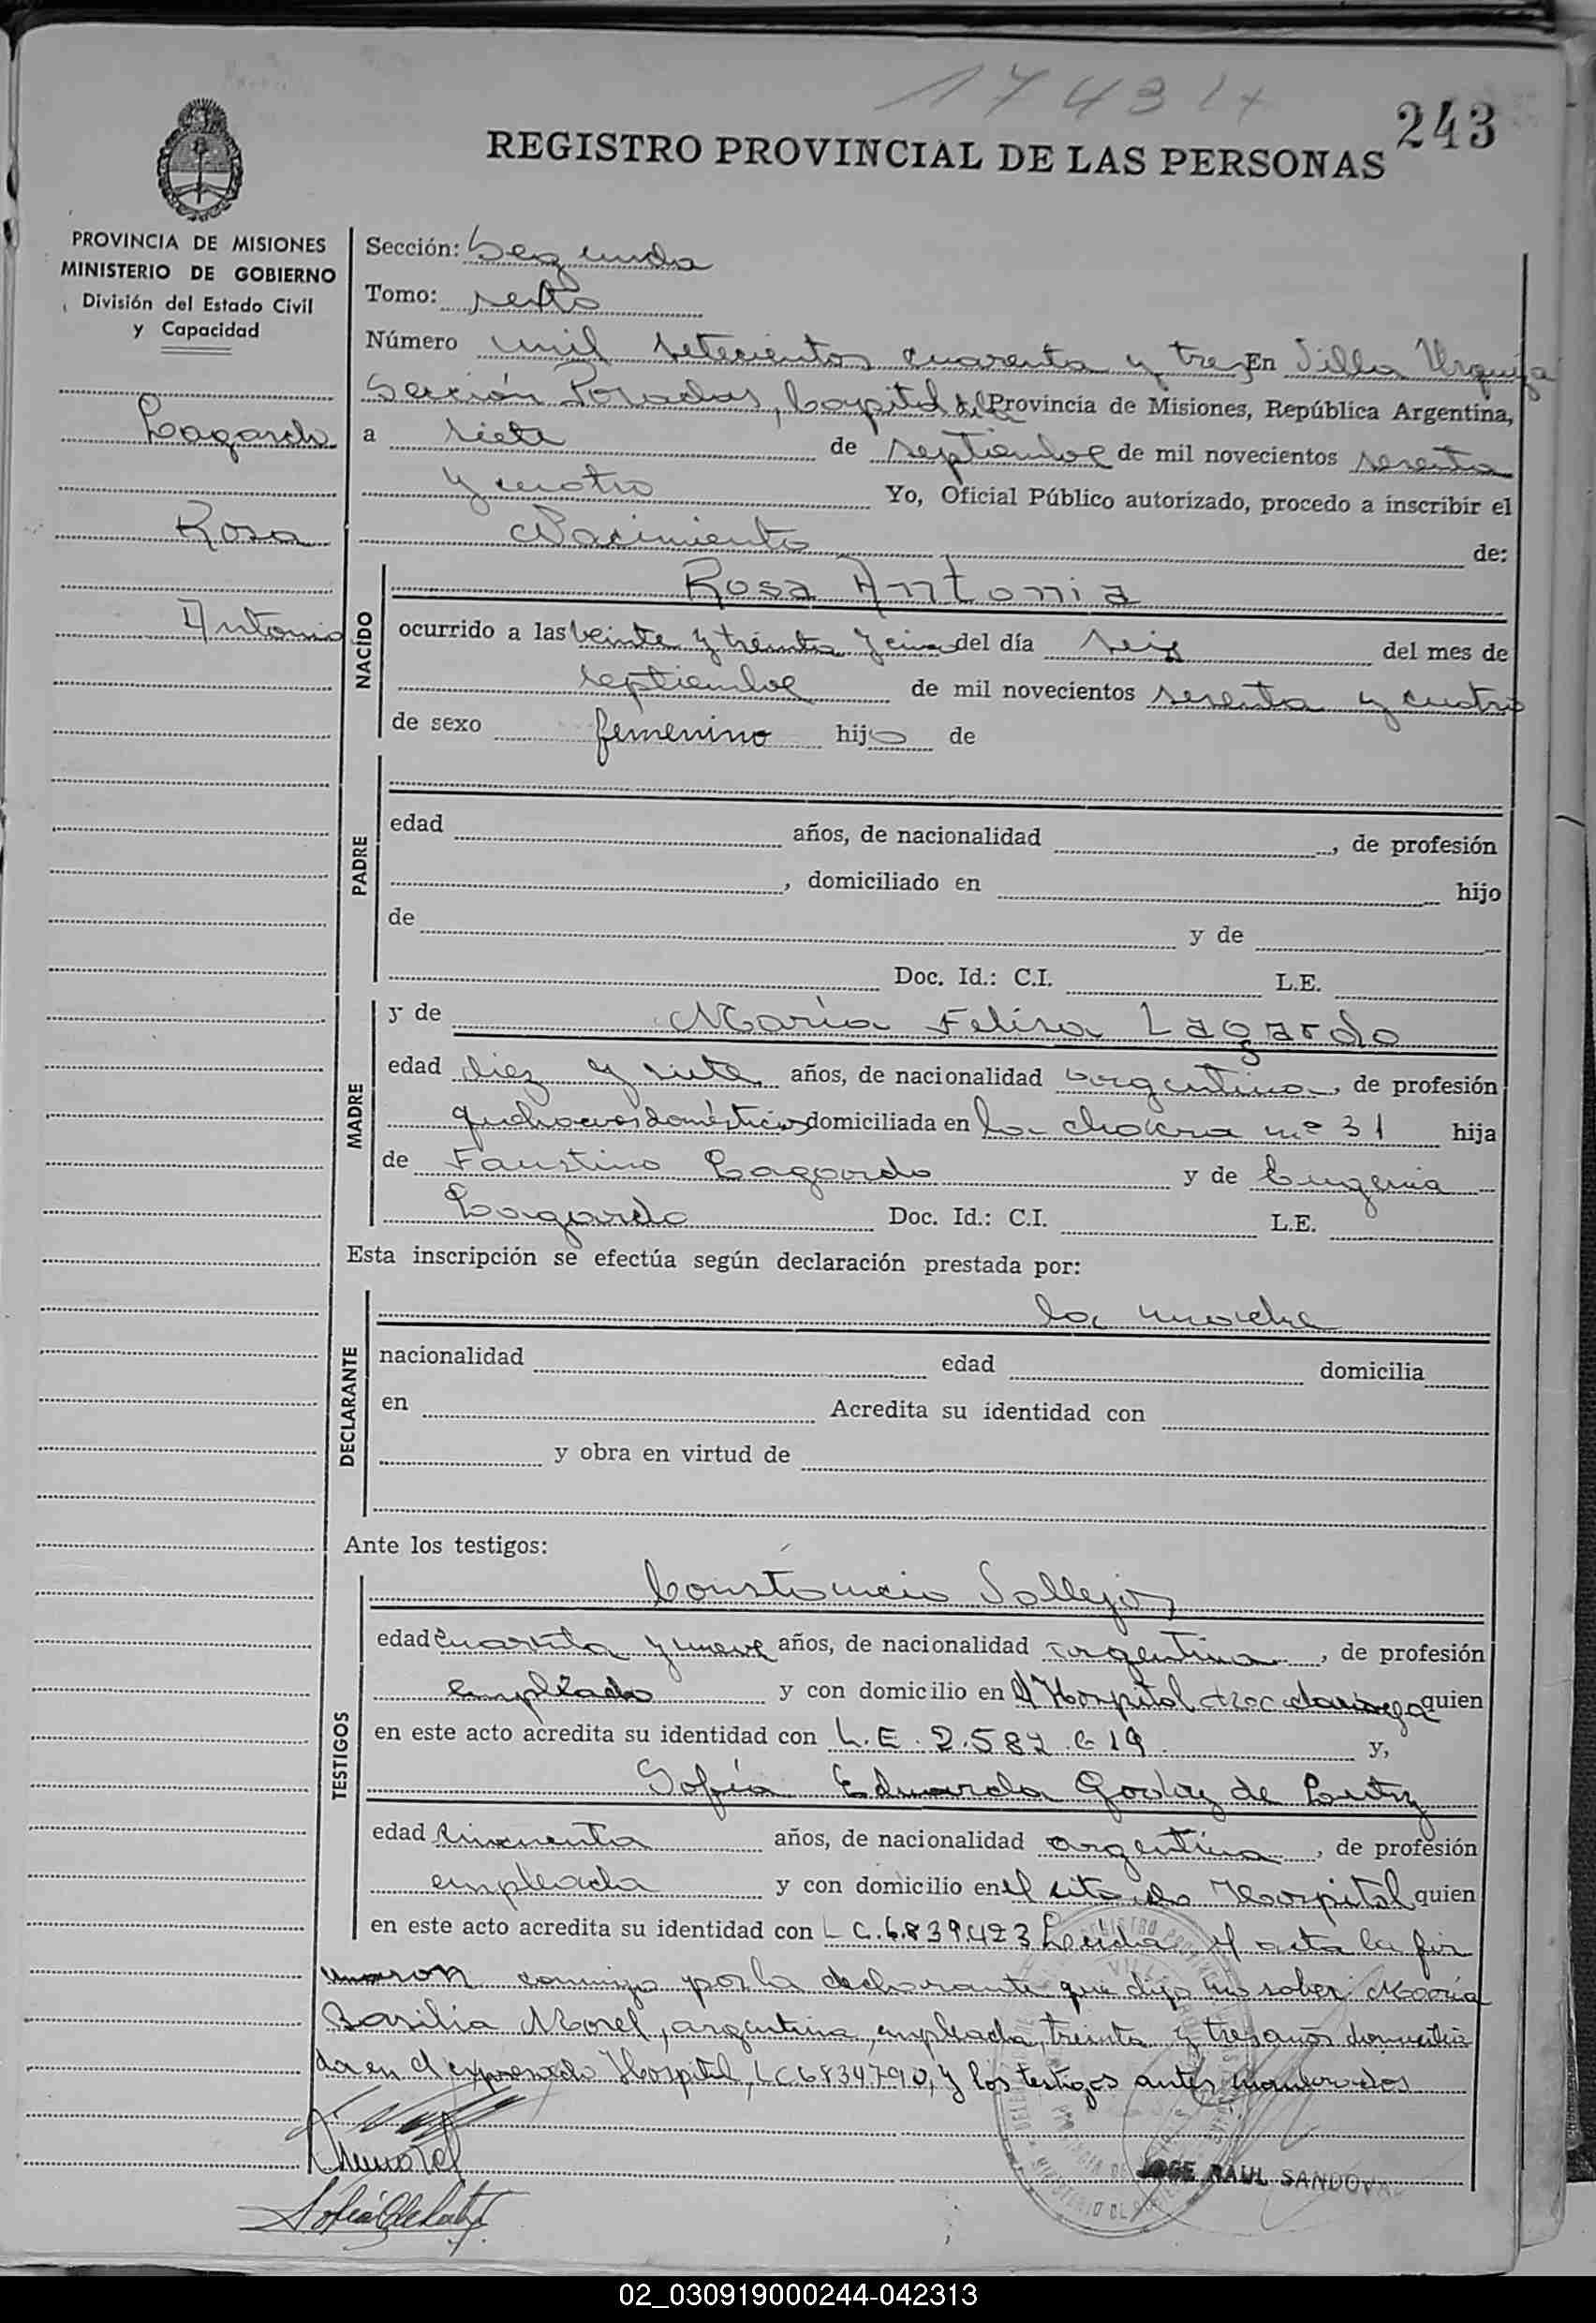 1743
243
REGISTRO PROVINCIAL DE LAS PERSONAS
PROVINCIA DE MISIONES
MINISTERIO DE GOBIERNO
División del Estado Civil
y Capacidad
Lagardo
Rosa
Antonia
Sección: Segunda
Tomo: sexto
Número mil setecientos cuarenta y tres En Villa Urquiza
Sección Posadas, Capital de la Provincia de Misiones, República Argentina,
a siete de septiembre de mil novecientos sesenta
y cuatro Yo, Oficial Público autorizado, procedo a inscribir el
Nacimiento de:
NACIDO
Rosa Antonia
ocurrido a las veinte y treinta y cinco del día seis del mes de
septiembre de mil novecientos sesenta y cuatro
de sexo femenino hijo de
PADRE
edad años, de nacionalidad , de profesión
, domiciliado en hijo
de y de
Doc. Id.: C.I. L.E.
MADRE
y de María Felisa Lagardo
edad diez y siete años, de nacionalidad argentina, de profesión
quehaceres domésticos domiciliada en la chacra nº 31 hija
de Faustino Lagardo y de Eugenia
Lagardo Doc. Id.: C.I. L.E.
Esta inscripción se efectúa según declaración prestada por:
DECLARANTE
la madre
nacionalidad edad domicilia
en Acredita su identidad con
y obra en virtud de
Ante los testigos:
TESTIGOS
Constancio Vallejos
edad cuarenta y nueve años, de nacionalidad argentina, de profesión
empleado y con domicilio en el Hospital quien
en este acto acredita su identidad con L.E. 2.582.619 y,
Sofía Eduarda Godoy de Lutz
edad cincuenta años, de nacionalidad argentina, de profesión
empleada y con domicilio en el citado Hospital quien
en este acto acredita su identidad con L C.6.839.423 Leída el acta la fir
maron conmigo por la declarante que dijo no saber María
Basilia Morel, argentina, empleada, treinta y tres años domicilia
da en el expresado Hospital, LC6834790, y los testigos antes nombrados
JOSE RAUL SANDOVAL
02_030919000244-042313